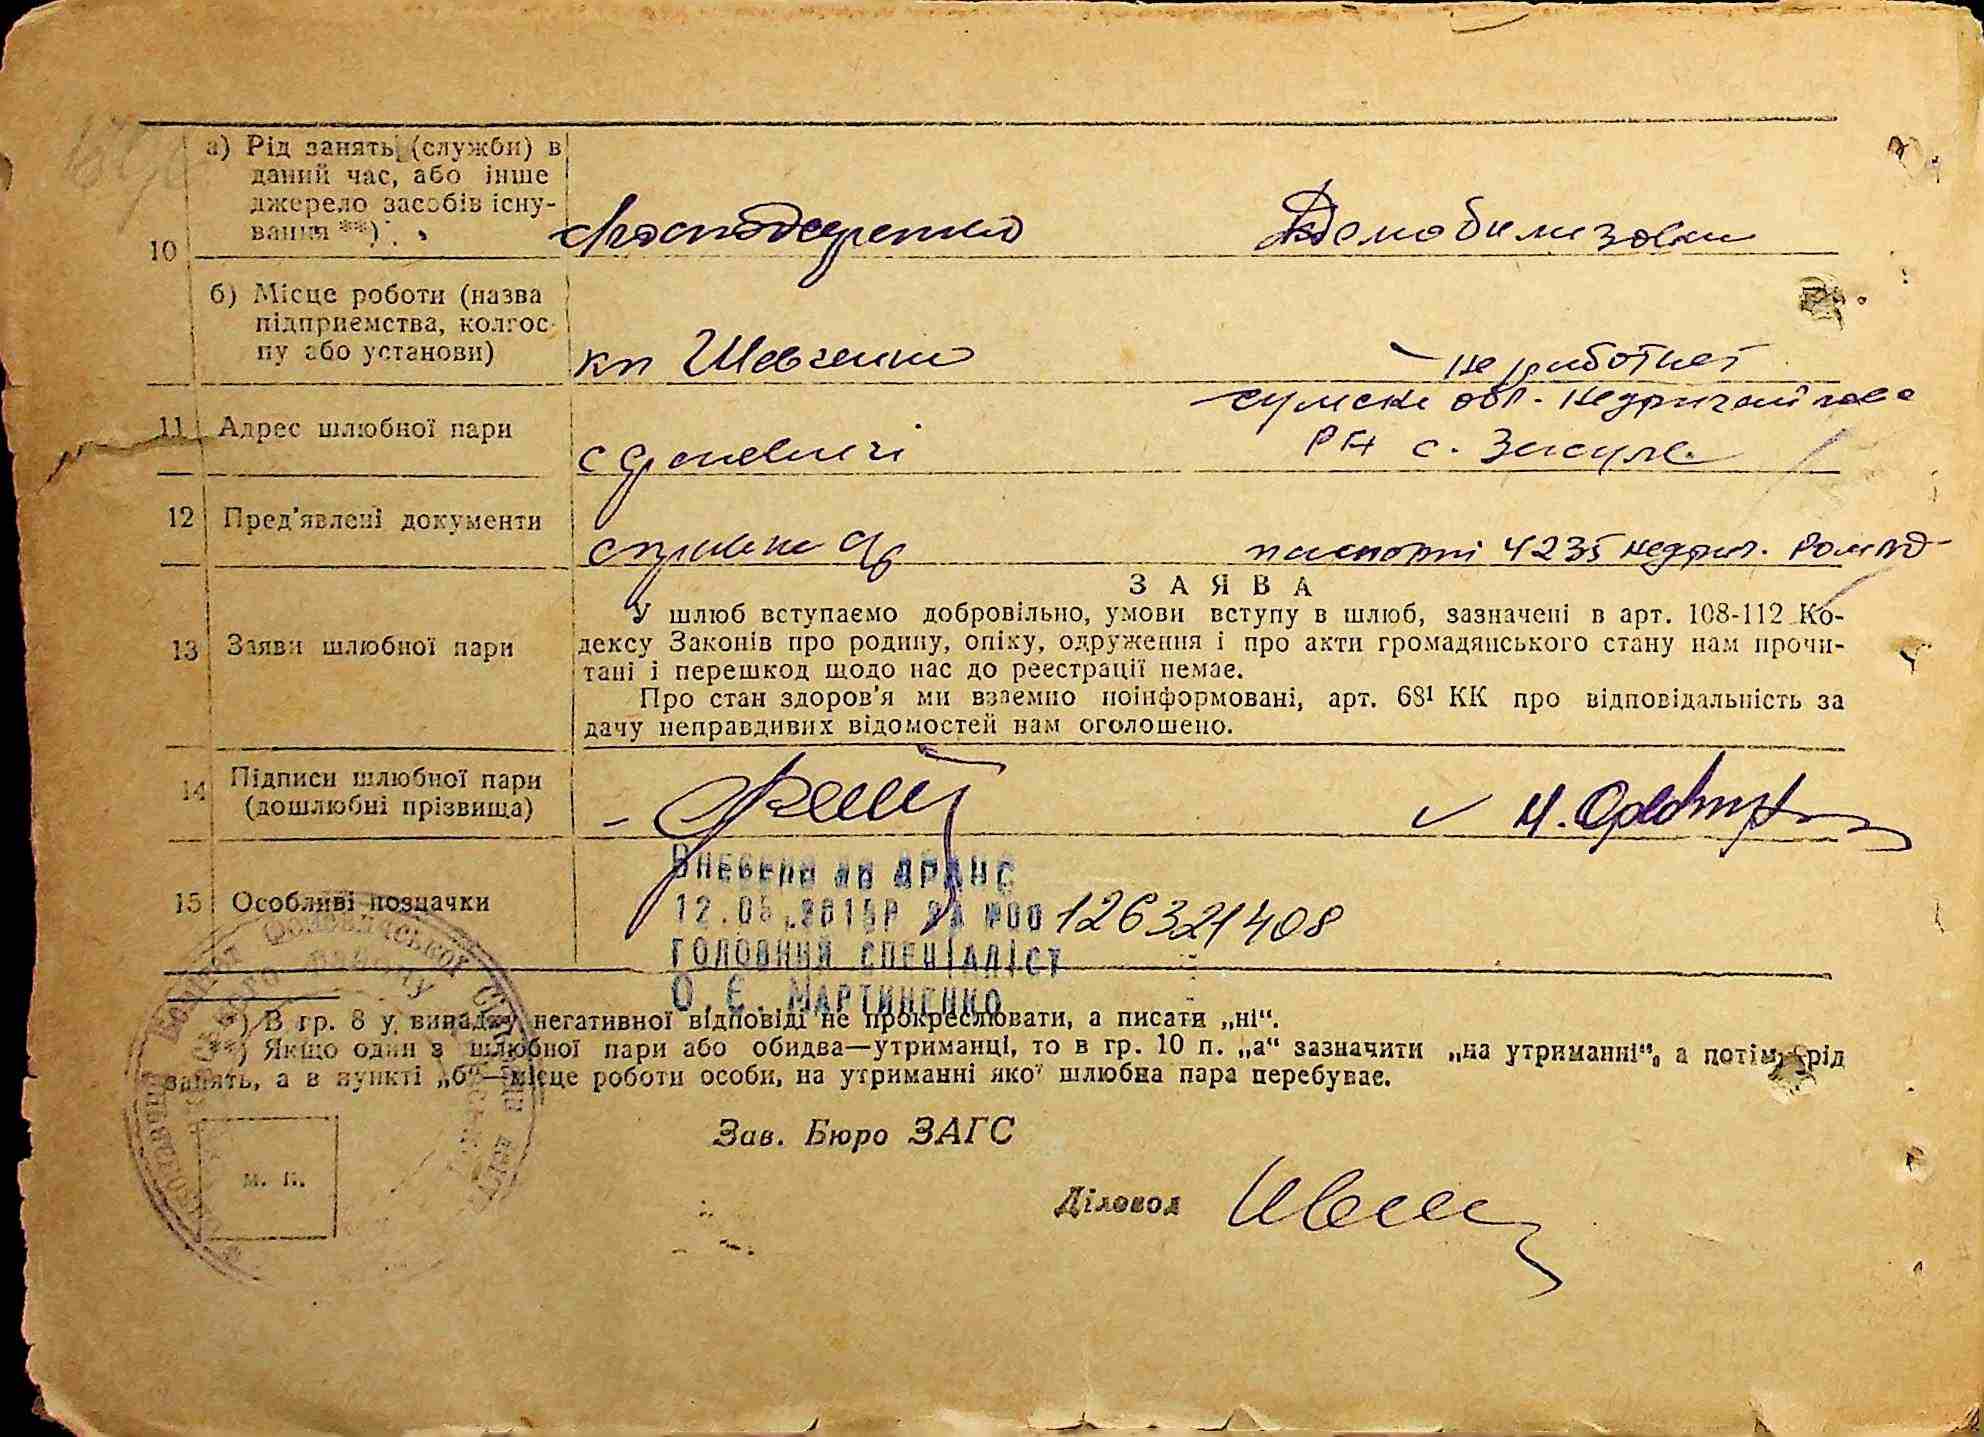 а) Рід занять (служби) в
даний час, або інше
джерело засобів існу-
вання **)
10
Демобилизован
б) Місце роботи (назва
підприємства, колгос-
пу або установи)
кп Шевченко
не работает
11 Адрес шлюбної пари
сумска обл. Недригайлове
РН с. Засулє
12 Пред'явлені документи
справка
паспорт 4235 Недриг.
З А Я В А
13 Заяви шлюбної пари
У шлюб вступаємо добровільно, умови вступу в шлюб, зазначені в арт. 108-112 Ко-
дексу Законів про родину, опіку, одруження і про акти громадянського стану нам прочи-
тані і перешкод щодо нас до реестрації немає.
Про стан здоров'я ми взаємно поінформовані, арт. 68¹ КК про відповідальність за
дачу неправдивих відомостей нам оголошено.
14 Підписи шлюбної пари
(дошлюбні прізвища)
Внесено до ДРАЦС
15 Особливі позначки
12.05.2015р за №00126321408
головний спеціаліст
О.Є. Мартиненко
*) В гр. 8 у випадку негативної відповіді не прокреслювати, а писати „ні“.
**) Якщо один з шлюбної пари або обидва—утриманці, то в гр. 10 п. „а“ зазначити „на утриманні“, а потім рід
занять, а в пункті „б“—місце роботи особи, на утриманні якої шлюбна пара перебуває.
Зав. Бюро ЗАГС
м. п.
Діловод